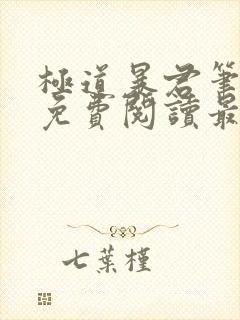 極道暴君筆
免費閱讀最
七葉槿